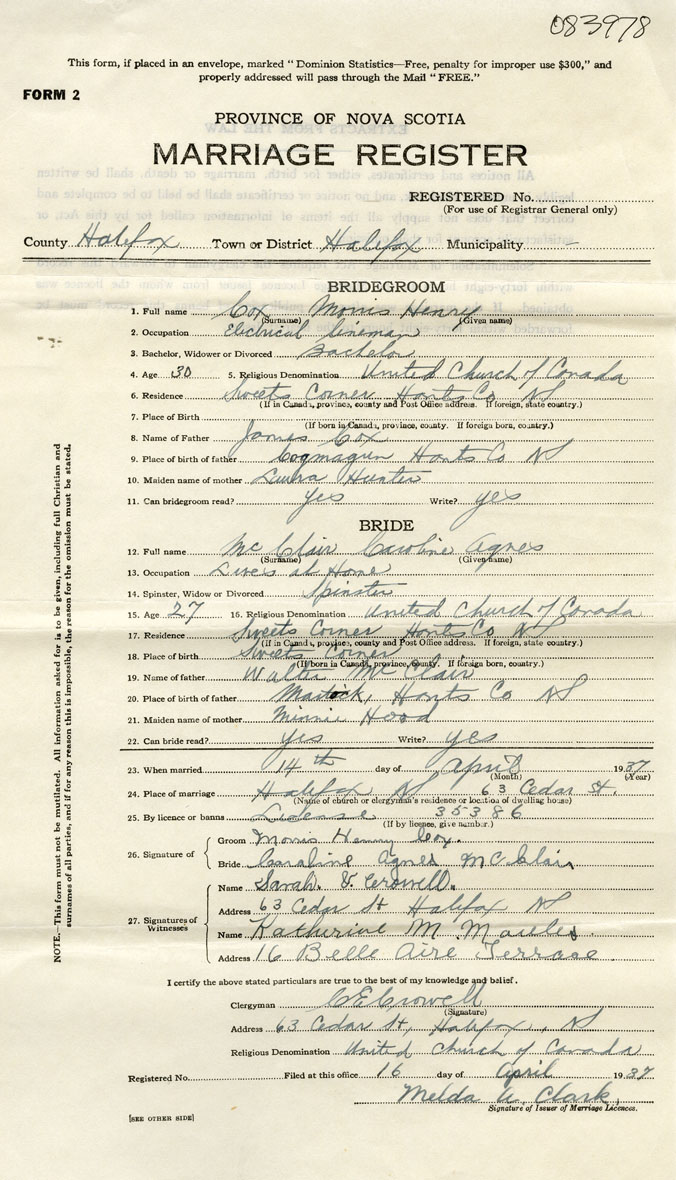 083978
This form, if placed in an envelope, marked “Dominion Statistics—Free, penalty for improper use $300,” and
properly addressed will pass through the Mail “FREE.”
FORM 2
PROVINCE OF NOVA SCOTIA
MARRIAGE REGISTER
REGISTERED No.
(For use of Registrar General only)
County Halifax Town or District Halifax Municipality —
BRIDEGROOM
1. Full name Cox Morris Henry
(Surname) (Given name)
2. Occupation Electrical Lineman
3. Bachelor, Widower or Divorced Bachelor
4. Age 30 5. Religious Denomination United Church of Canada
6. Residence Sweets Corner Hants Co NS
(If in Canada, province, county and Post Office address. If foreign, state country.)
7. Place of Birth
(If born in Canada, province, county. If foreign born, country.)
8. Name of Father James Cox
9. Place of birth of father Cogmagun Hants Co NS
10. Maiden name of mother Laura Hunter
11. Can bridegroom read? Yes Write? yes
BRIDE
12. Full name McClair Caroline Agnes
(Surname) (Given name)
13. Occupation Lives at Home
14. Spinster, Widow or Divorced Spinster
15. Age 27 16. Religious Denomination United Church of Canada
17. Residence Sweets Corner Hants Co NS
(If in Canada, province, county and Post Office address. If foreign, state country.)
18. Place of birth Sweets Corner
(If born in Canada, province, county. If foreign born, country.)
19. Name of father Walter McClair
20. Place of birth of father Martock, Hants Co NS
21. Maiden name of mother Minnie Hood
22. Can bride read? yes Write? yes
23. When married 14th day of April 1937
(Month) (Year)
24. Place of marriage Halifax NS 63 Cedar St.
(Name of church or clergyman's residence or location of dwelling house)
25. By licence or banns License 35386
(If by licence, give number.)
26. Signature of Groom Morris Henry Cox.
Bride Caroline Agnes McClair
27. Signatures of Witnesses
Name Sarah. V. Crowell.
Address 63 Cedar St Halifax NS
Name Katherine M. Maules
Address 16 Belle Aire Terrace
I certify the above stated particulars are true to the best of my knowledge and belief.
Clergyman CECrowell
(Signature)
Address 63 Cedar St, Halifax, NS
Religious Denomination United Church of Canada
Registered No. Filed at this office 16 day of April 1937
Melda A. Clark,
Signature of Issuer of Marriage Licences.
[SEE OTHER SIDE]
NOTE.—This form must not be mutilated. All information asked for is to be given, including full Christian and
surnames of all parties, and if for any reason this is impossible, the reason for the omission must be stated.